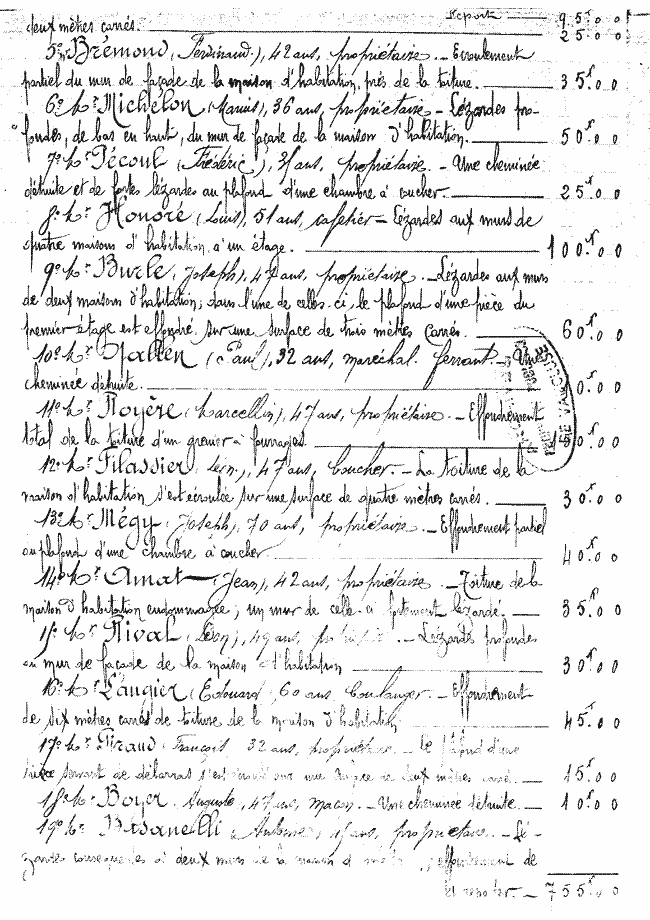 Report 95.00
deux mètres carrés. 25.00
5º Brémond (Ferdinand), 42 ans, propriétaire. - Ecroulement
partiel du mur de façade de la maison d'habitation, près de la toiture. 35f.00
6º Mr Michelon (Marius), 36 ans, propriétaire - Lézardes pro-
fondes, de bas en haut, du mur de façade de la maison d'habitation. 50f.00
7º Mr Pécoul (Frédéric), ans, propriétaire. - Une cheminée
détruite et de fortes lézardes au plafond d'une chambre à coucher. 25f.00
8º Mr Honoré (Louis), 51 ans, cafetier - Lézardes aux murs de
quatre maisons d'habitation, à un étage. 100f.00
9º Mr Burle (Joseph), 47 ans, propriétaire. - Lézardes aux murs
de deux maisons d'habitation; dans l'une de celles-ci, le plafond d'une pièce du
premier étage est effondré, sur une surface de trois mètres carrés. 60f.00
10º Mr (Paul), 32 ans, maréchal-ferrant. - Une
cheminée détruite. 0f.00
11º Mr Royère (Marcellin), 47 ans, propriétaire. - Effondrement
total de la toiture d'un grenier à fourrages. 0f.00
12º Mr Filassier, 47 ans, boucher. - La toiture de la
maison d'habitation s'est écroulée sur une surface de quatre mètres carrés. 30f.00
13º Mr Mégy (Joseph), 70 ans, propriétaire. - Effondrement partiel
au plafond d'une chambre à coucher. 40f.00
14º Mr Amat (Jean), 42 ans, propriétaire. - Toiture de la
maison d'habitation endommagée; un mur de celle-ci fortement lézardé. 35f.00
15º Mr Rival (Léon), 49 ans, propriétaire. - Lézardes profondes
au mur de façade de la maison d'habitation 30f.00
16º Mr Laugier (Edouard), 60 ans, boulanger. - Effondrement
de six mètres carrés de toiture de la maison d'habitation 45f.00
17º Mr Giraud (François) 32 ans, propriétaire. - Le plafond d'une
pièce servant de débarras s'est sur une surface de deux mètres carrés. 15f.00
18º Mr Boyer Auguste, 47 ans, maçon. - Une cheminée détruite. 10f.00
19º Mr (Antoine), ans, propriétaire. - Lé-
zardes conséquentes à deux murs de la maison d ; effondrement de
à reporter. - 755f.00